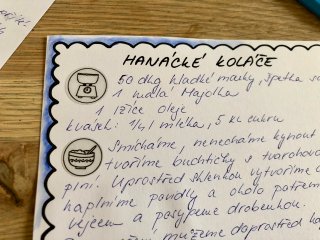 HANACKÉ KOLÁČE
50 dkg hladké mouky, špetka
1 malá Majolka
1 lžíce oleje
kvásek: 1/4l mléka, 5 kr cukru
Smícháme, nenecháme kynout
tvoříme buchtičky s tvarohovou
plní. Uprostřed sklenkou vytvoříme
naplníme povidly a okolo potřeme
vejcem a posypeme drobenkou.
můžeme doprostřed